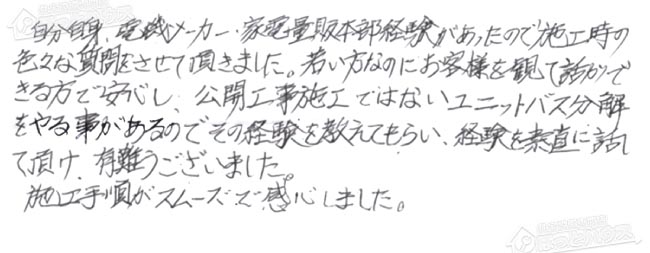 自分自身、電機メーカー・家電量販本部経験があったので施工時の
色々な質問をさせて頂きました。若い方なのにお客様を観て話がで
きる方で安心し、公開工事施工ではないユニットバス分解
をやる事があるのでその経験を教えてもらい、経験を素直に話し
て頂け、有難うございました。
施工手順がスムーズで感心しました。